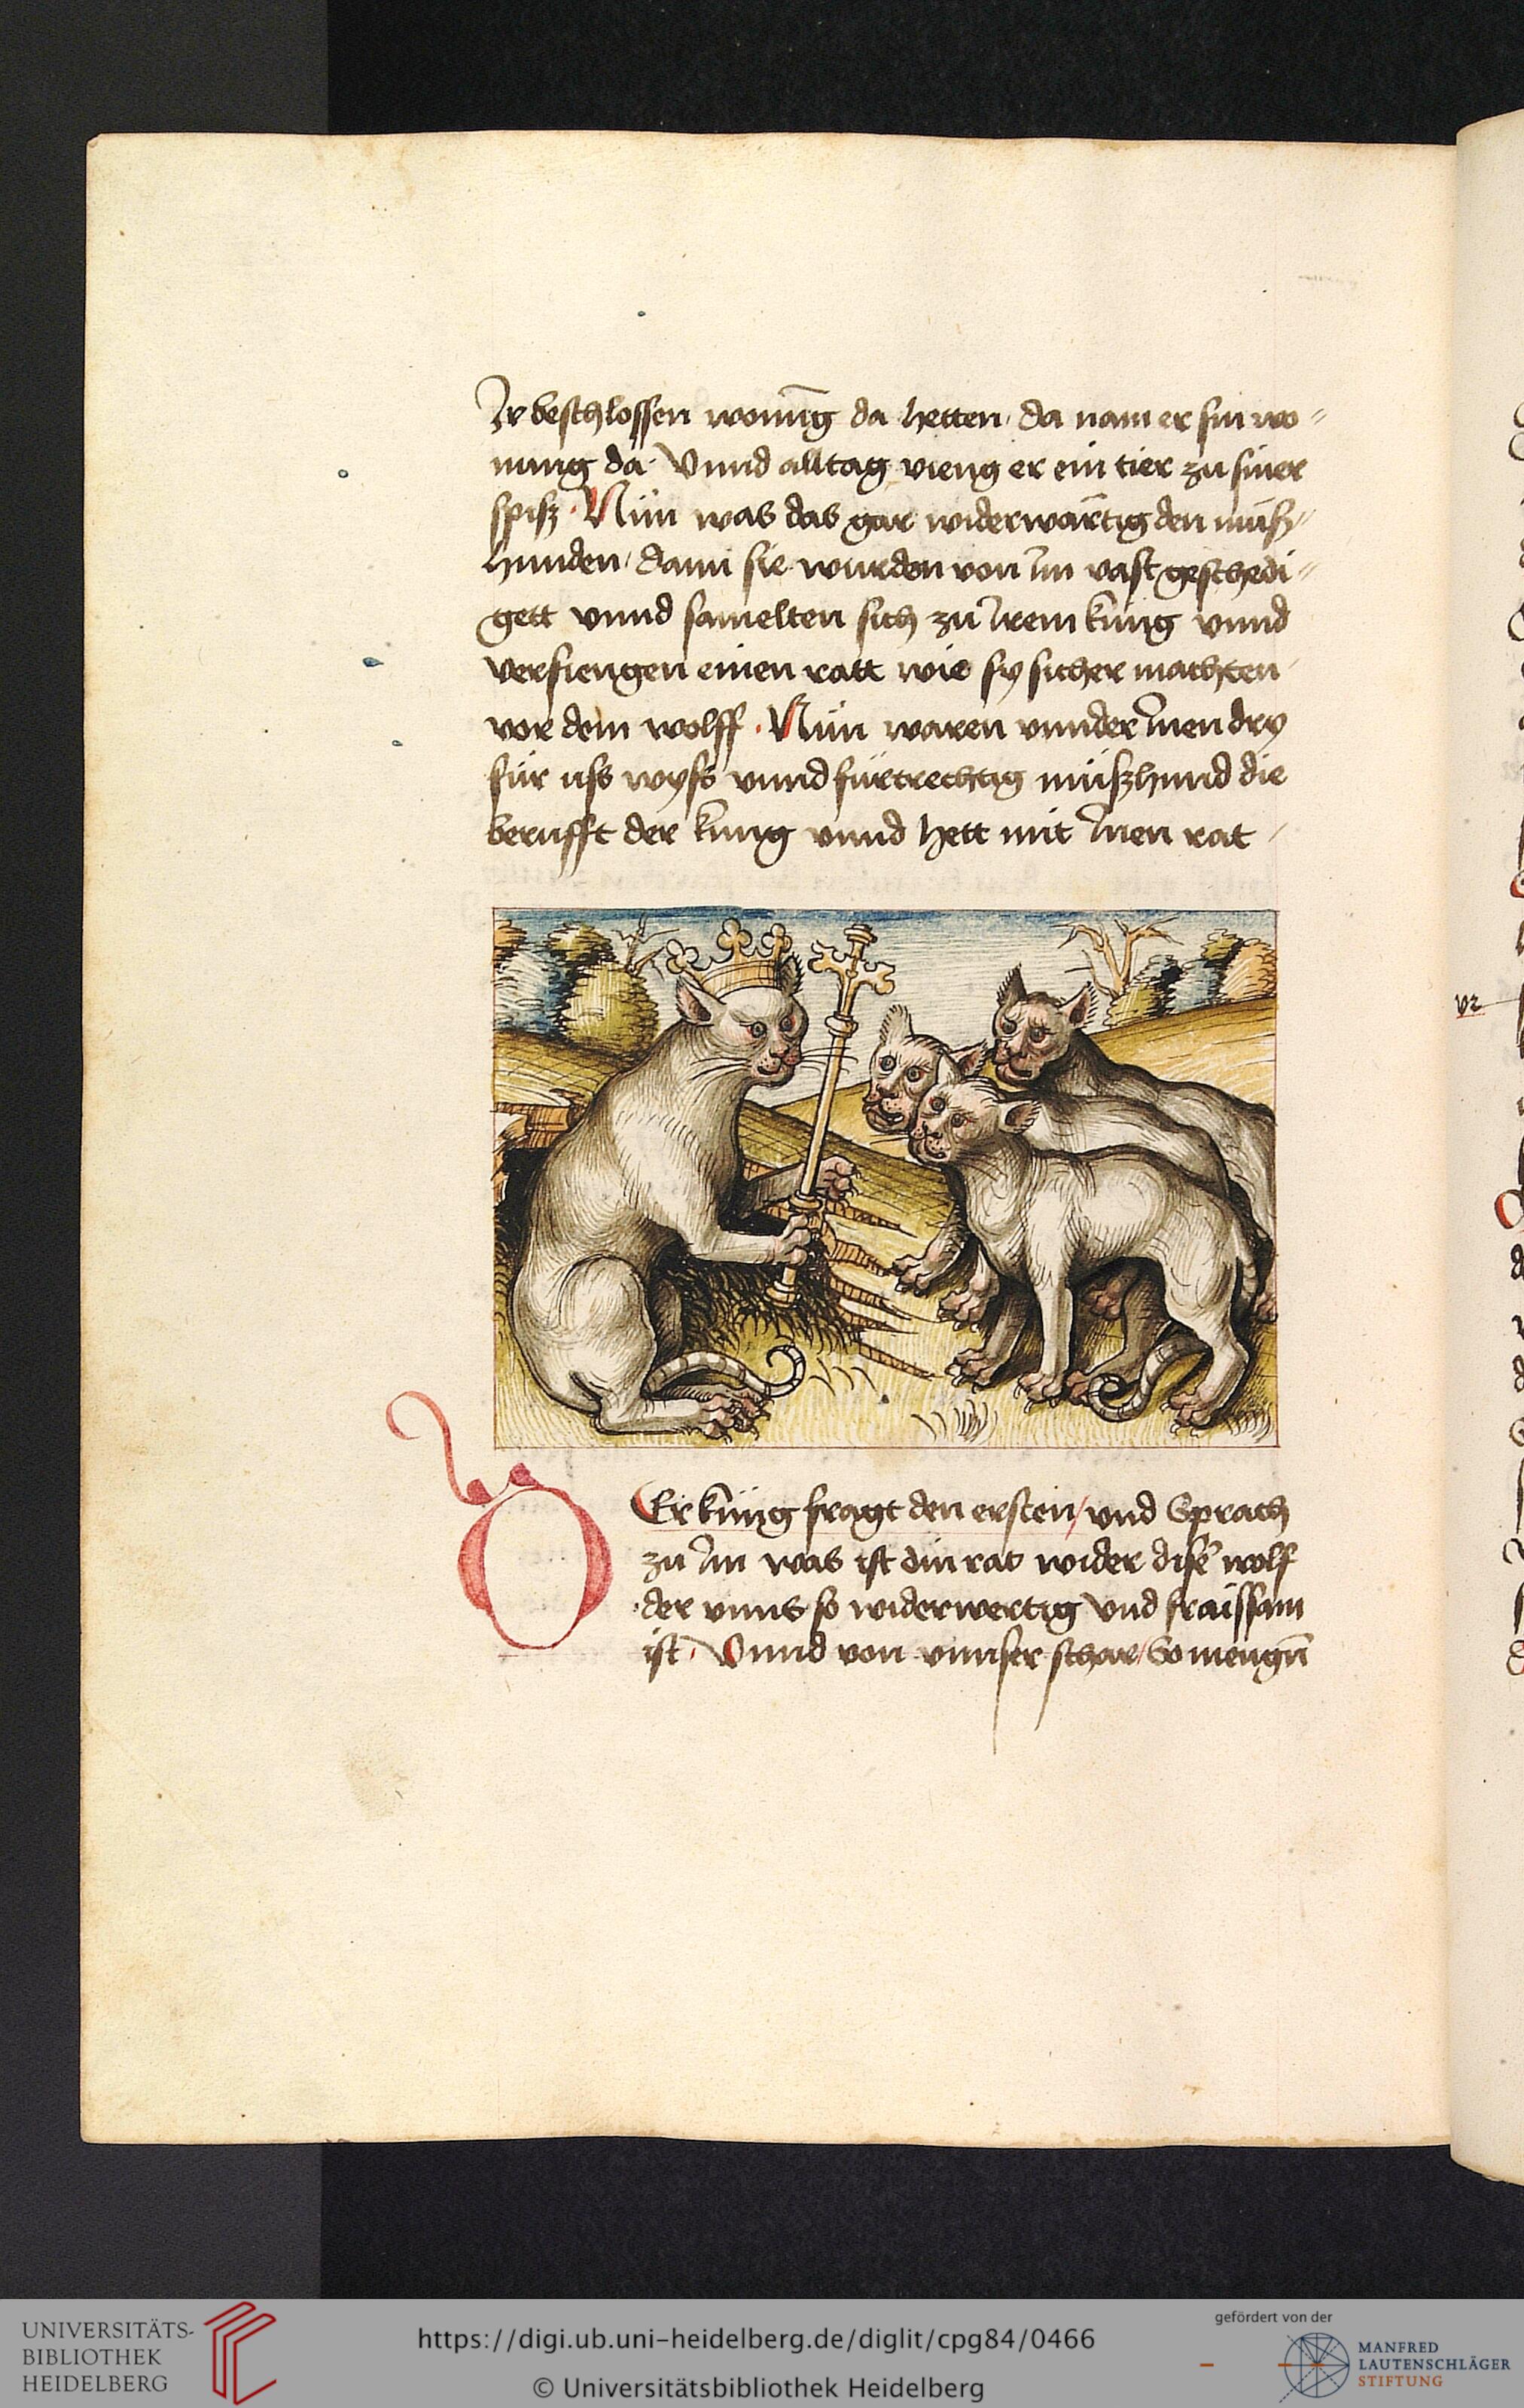 Ir beschlossen wonūg da hetten / da nam er sin wo⸗
nung da · Vnnd alltag vieng er ein tier zu siner
spisz · Nün was das gar widerwärtig den müsz⸗
hunden / dann sie wurden von im vast geschedi⸗
gett vnnd samelten sich zü irem küng vnnd
verfiengen einen ratt wie sy sicher machten
vor dem wolff · Nün waren vnnder inen dry
für uss wyss vnnd fürtrechtig müszhund die
berufft der küng vnnd hett mit inen rat /
DEr küng fragt den ersten / vnd Sprach
zu im was ist din rat wider disē wolf
der vnns so widerwertig vnd fraissam
ist · Vnnd von vnnser schar / So mengñ
UNIVERSITÄTS-
BIBLIOTHEK
HEIDELBERG
https://digi.ub.uni-heidelberg.de/diglit/cpg84/0466
© Universitätsbibliothek Heidelberg
gefördert von der
MANFRED
LAUTENSCHLÄGER
STIFTUNG